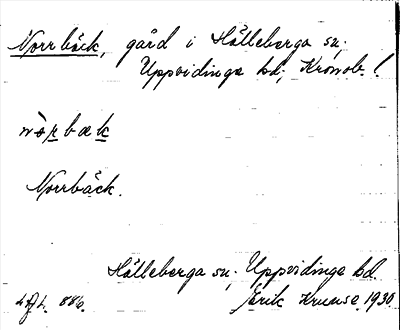 Norrbäck, gård i Hälleberga sn,
Uppvidinge hd, Kronob. l.
nòrbæk
Norrbäck.
Hälleberga sn, Uppvidinge hd.
886. Erik Kruuse 1930